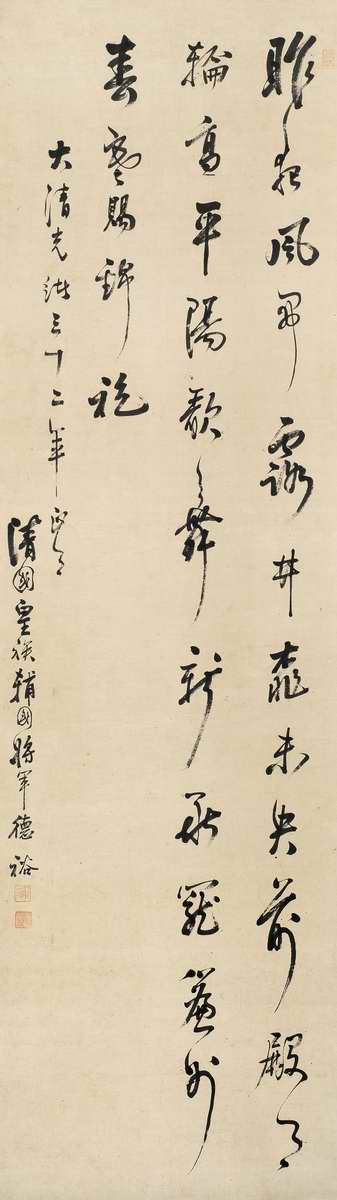 昨夜風開露井桃未央前殿月
輪高平陽歌舞新承寵簾外
春寒賜錦袍
大清光緒三十二年
清國皇族輔國將軍德裕